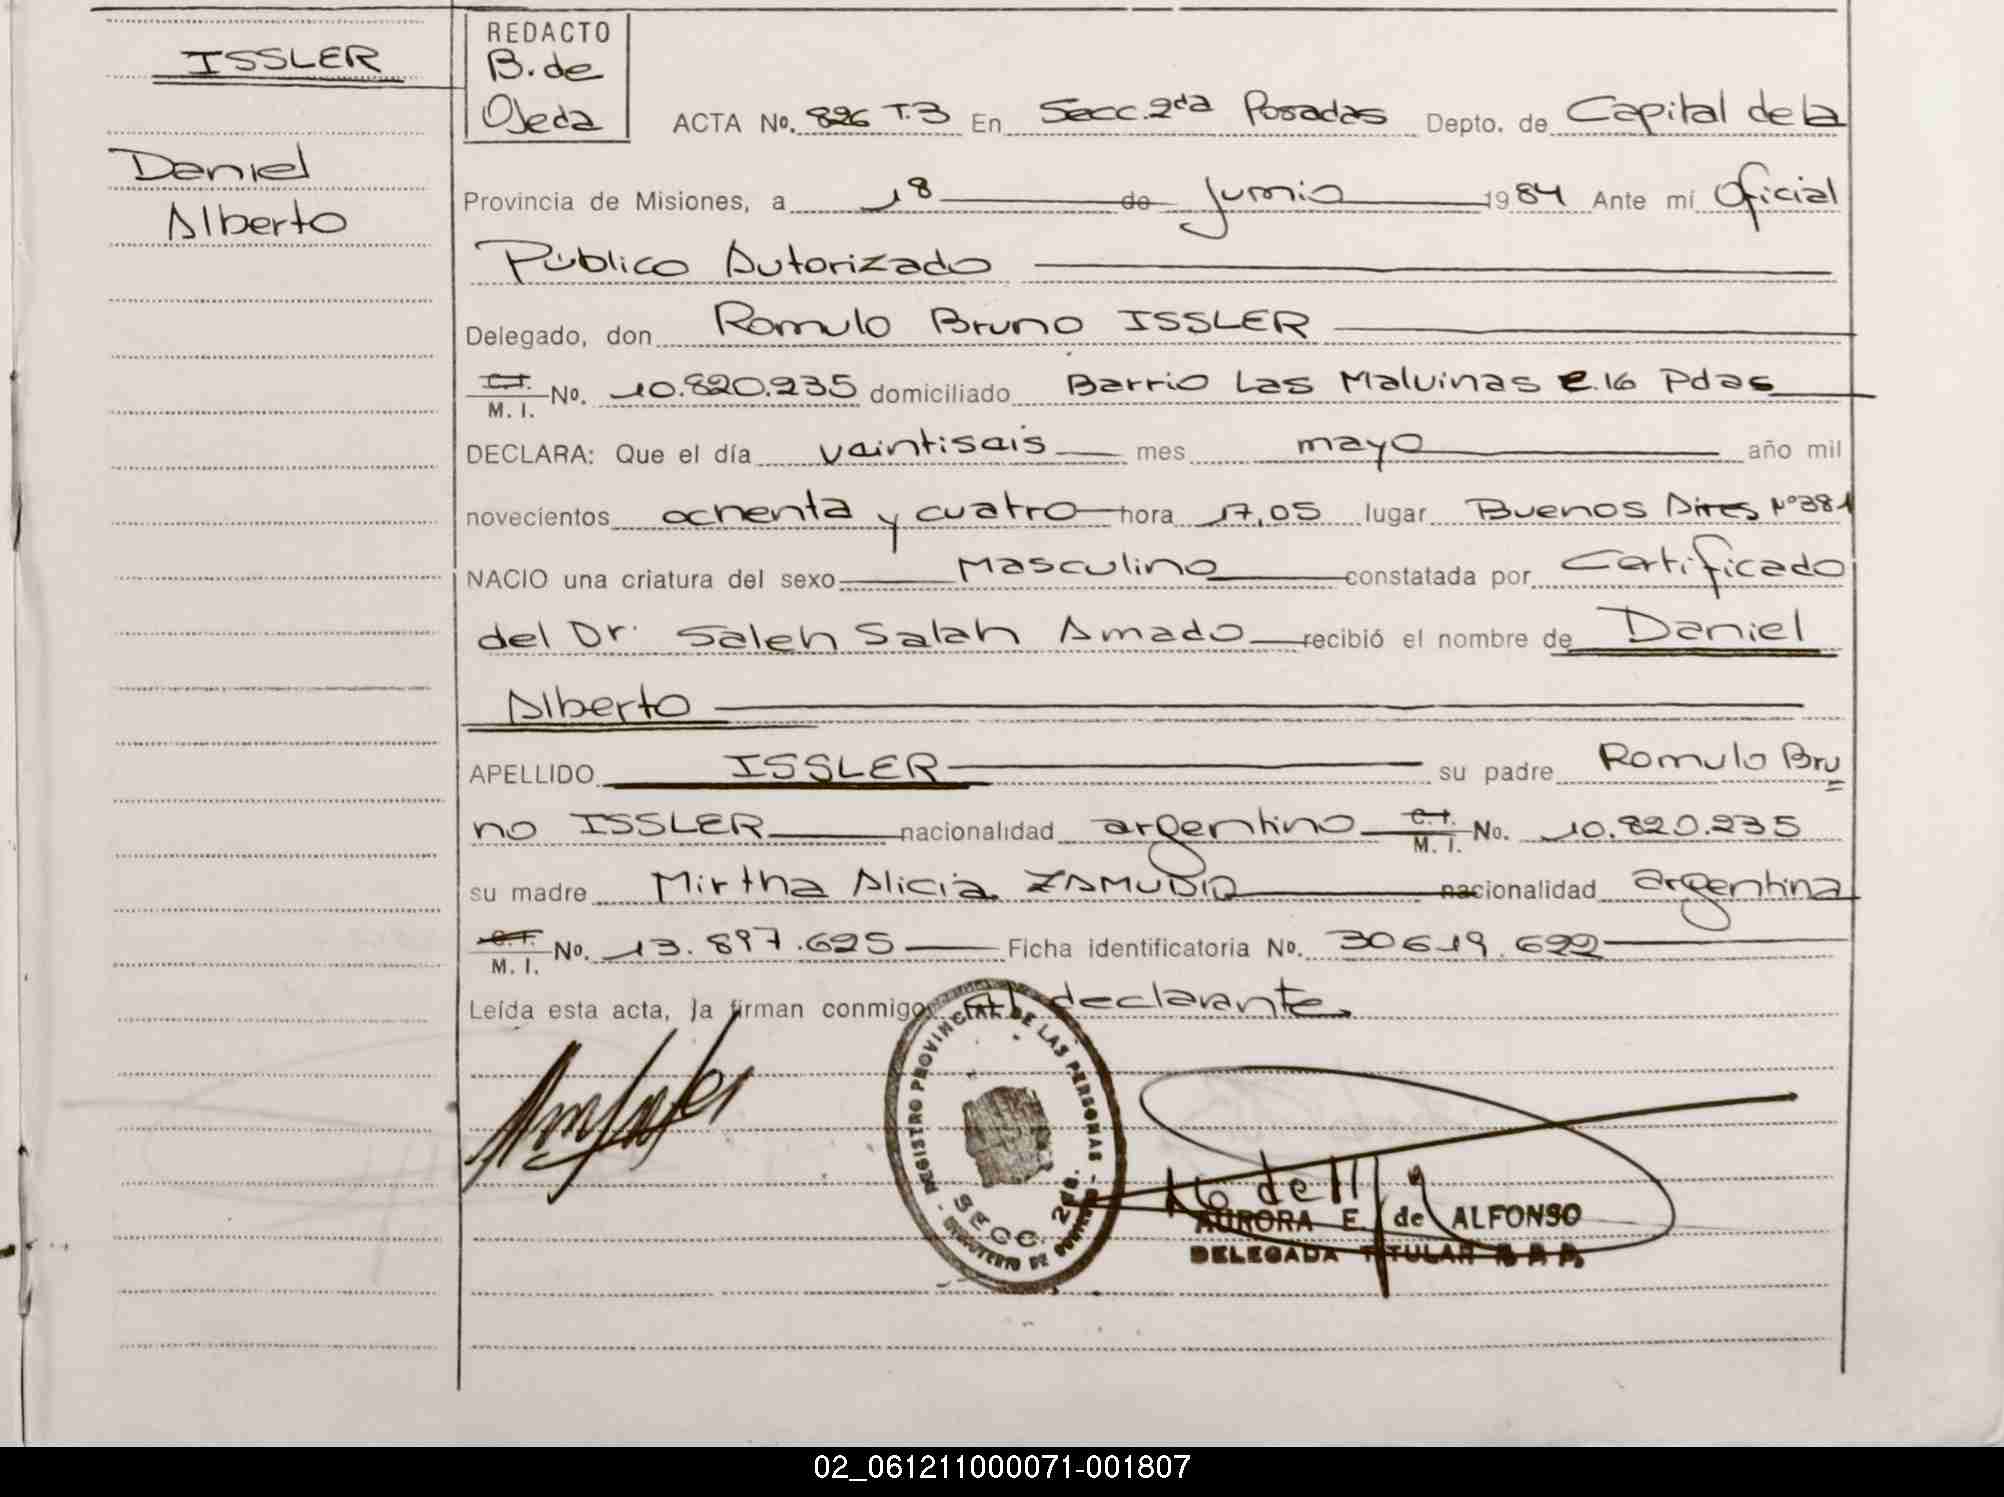 ISSLER
Daniel
Alberto
REDACTO
B. de
Ojeda
ACTA No. 826 T.3 En Secc. 2da Posadas Depto. de Capital de la
Provincia de Misiones, a 18 de Junio 1984 Ante mí Oficial
Público Autorizado
Delegado, don Romulo Bruno ISSLER
C.I.
M. I. No. 10.820.235 domiciliado Barrio Las Malvinas e.16 Pdas
DECLARA: Que el día veintiseis mes mayo año mil
novecientos ochenta y cuatro hora 17,05 lugar Buenos Aires Nº381
NACIO una criatura del sexo Masculino constatada por Certificado
del Dr. Saleh Salah Amado recibió el nombre de Daniel
Alberto
APELLIDO ISSLER su padre Romulo Bru
no ISSLER nacionalidad argentino C.I.
M. I. No. 10.820.235
su madre Mirtha Alicia ZAMUDIO nacionalidad argentina
C.I.
M. I. No. 13.897.625 Ficha identificatoria No. 30619.622
Leída esta acta, la firman conmigo el declarante
REGISTRO PROVINCIAL DE LAS PERSONAS
SECC. 2da.
AURORA E. de ALFONSO
DELEGADA TITULAR R.P.P.
02_061211000071-001807